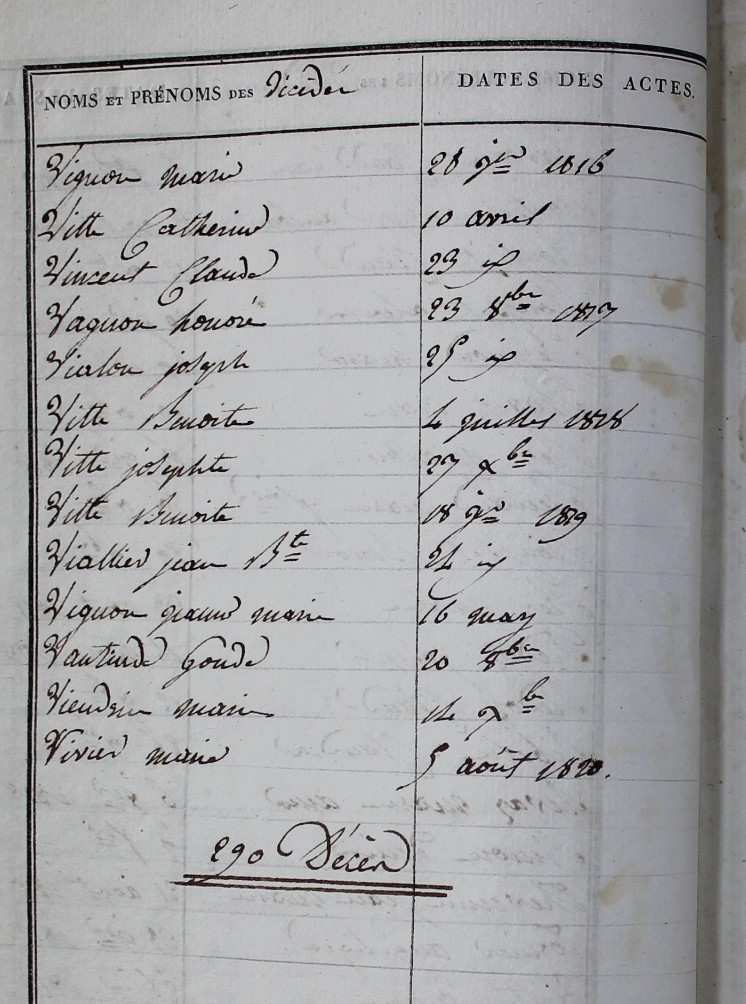 NOMS ET PRÉNOMS DES Décédés DATES DES ACTES.
Vignon marie 28 jer 1816
Vitte Catherine 10 avril
Vincent Claude 23 id
Vagnon honoré 23 8bre 1817
Vialon joseph 25 id
Vitte Benoite 4 juillet 1818
Vitte josephte 27 xbre
Vitte Benoite 18 jer 1819
Viallier jean Bte 24 id
Vignon jeanne marie 16 may
20 8bre
marie 14 xb
Vivier marie 5 août 1820.
290 Décès